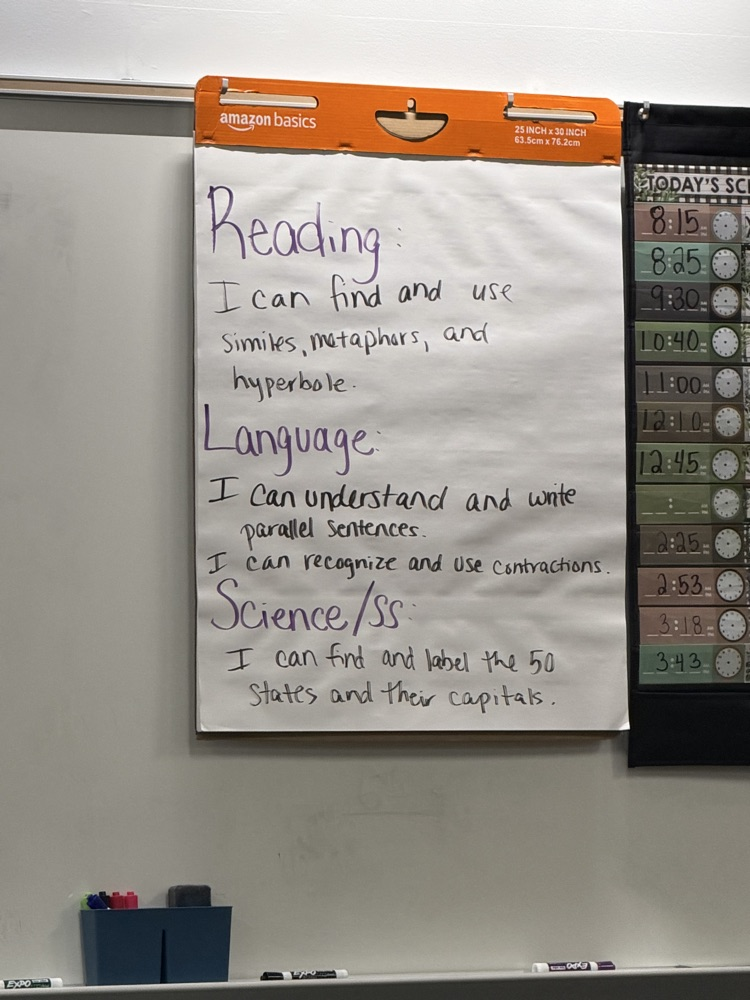 amazon basics
25 INCH x 30 INCH
63.5cm x 76.2cm
Reading:
I can find and use
similes, metaphors, and
hyperbole.
Language:
I can understand and write
parallel sentences.
I can recognize and use contractions.
Science/SS:
I can find and label the 50
states and their capitals.
TODAY'S SC
8:15
8:25
9:30
10:40
11:00
12:10
12:45
2:25
2:53
3:18
3:43
EXPO
EXPO
EXPO